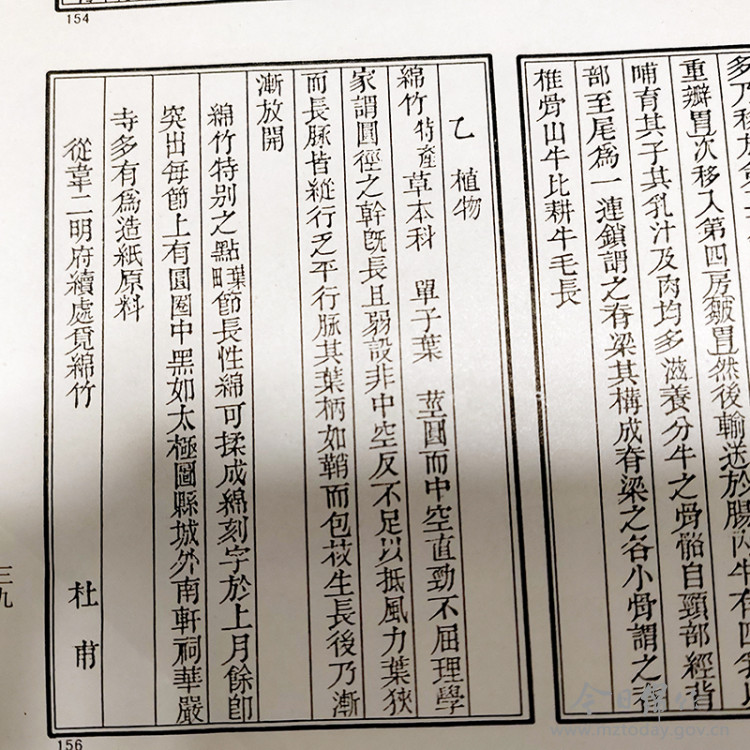 154
多乃移
重瓣胃次移入第四房皺胃然後輸送於腸內牛有四
哺育其子其乳汁及肉均多滋養分牛之骨骼自頸部經背
部至尾爲一連鎖謂之脊梁其構成脊梁之各小骨謂之脊
椎骨山牛比耕牛毛長
乙 植物
綿竹 特產 草本科 單子葉 莖圓而中空直勁不屈理學
家謂圓徑之幹旣長且弱設非中空反不足以抵風力葉狹
而長脉皆縱行之平行脉其葉柄如鞘而包莖生長後乃漸
漸放開
綿竹特別之點 節長性綿可揉成綿刻字於上月餘卽
突出每節上有圓圈中黑如太極圖縣城外南軒祠華嚴
寺多有爲造紙原料
從韋二明府續處覓綿竹 杜甫
三九
156
今日綿竹
www.mztoday.gov.cn